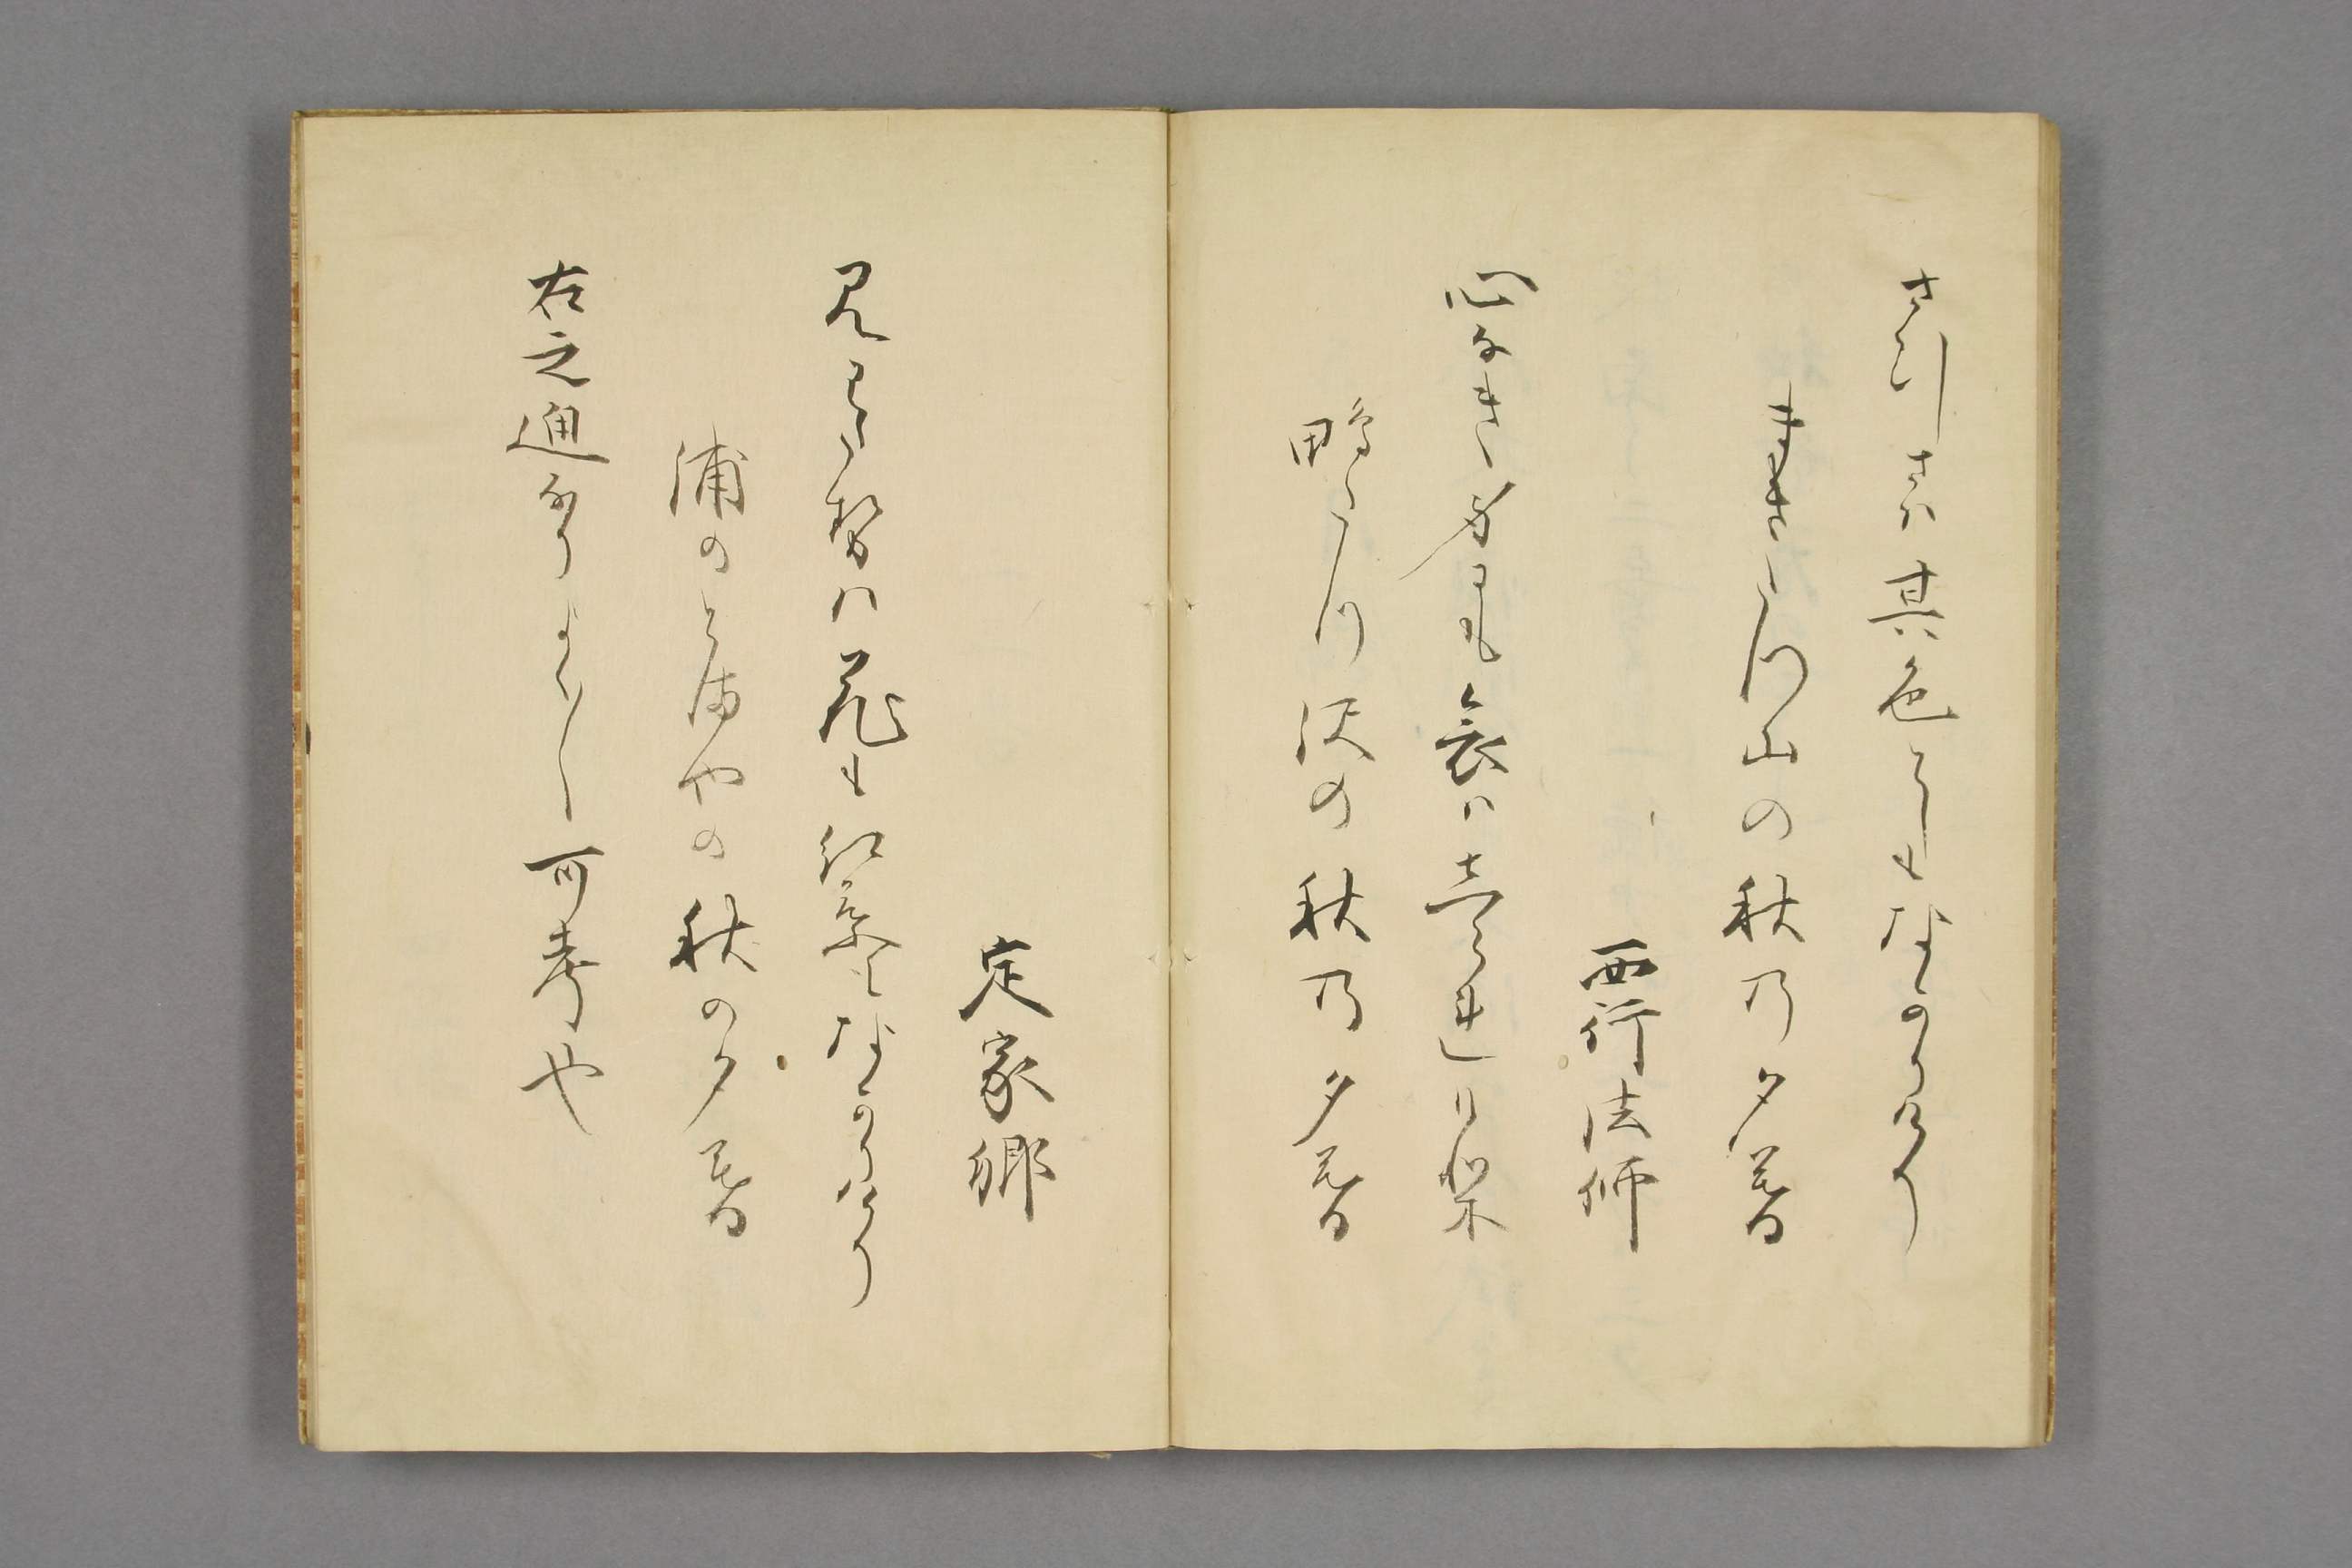 さひしさハ其色としもなかりけり
まきたつ山の秋乃夕暮
西行法師
心なき身にも哀ハしられけり
鴫たつ沢の秋乃夕暮
定家卿
見わたせハ花も紅葉もなかりけり
浦のとまやの秋の夕暮
右之通なり
可考や